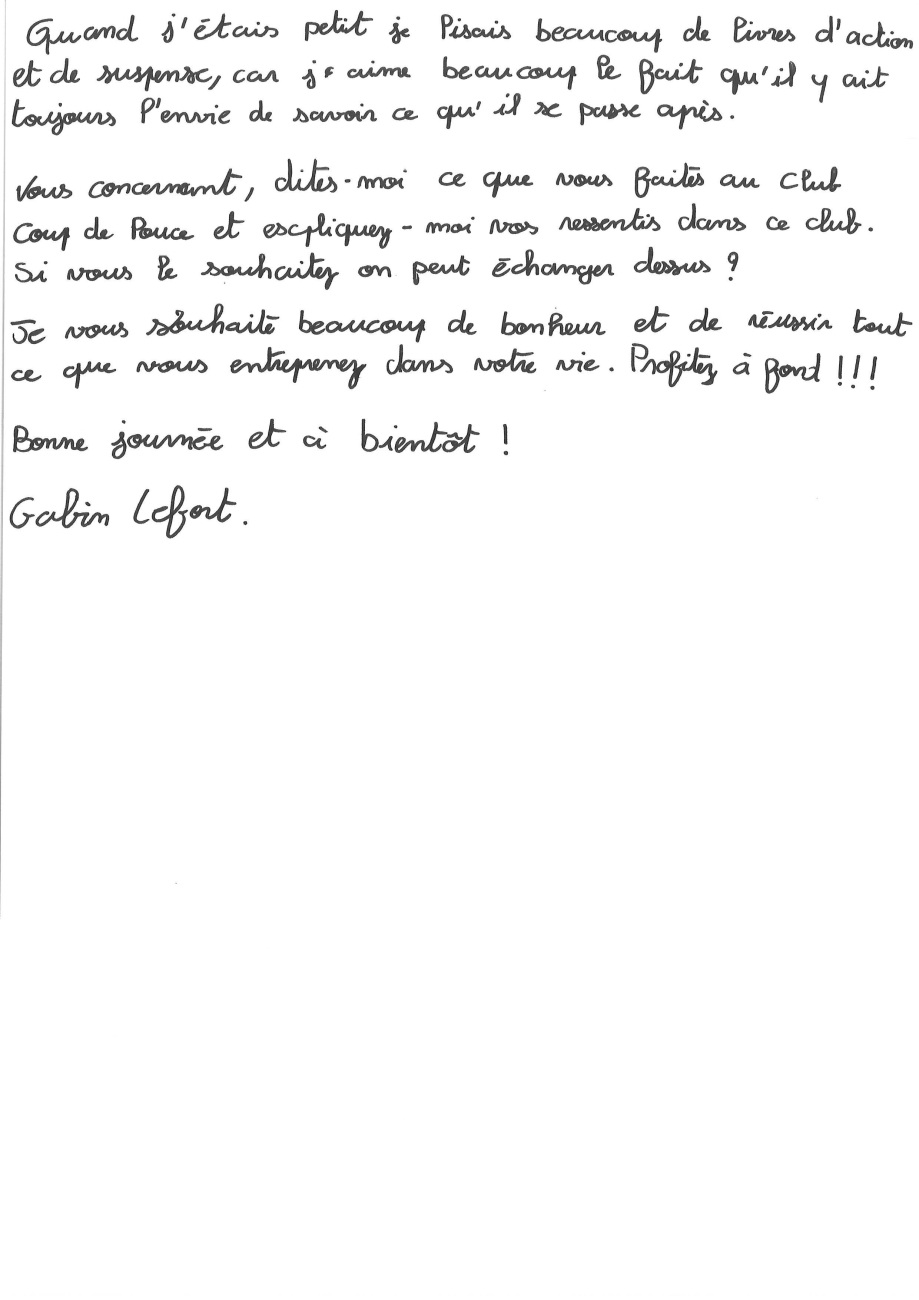 Quand j'étais petit je lisais beaucoup de livres d'action
et de suspense, car j'aime beaucoup le fait qu'il y ait
toujours l'envie de savoir ce qu'il se passe après.
Vous concernant, dites-moi ce que vous faites au Club
Coup de Pouce et escpliquez-moi vos ressentis dans ce club.
Si vous le souhaitez on peut échanger dessus ?
Je vous souhaite beaucoup de bonheur et de réussir tout
ce que vous entreprenez dans votre vie. Profitez à fond !!!
Bonne journée et à bientôt !
Gabin Lefort.